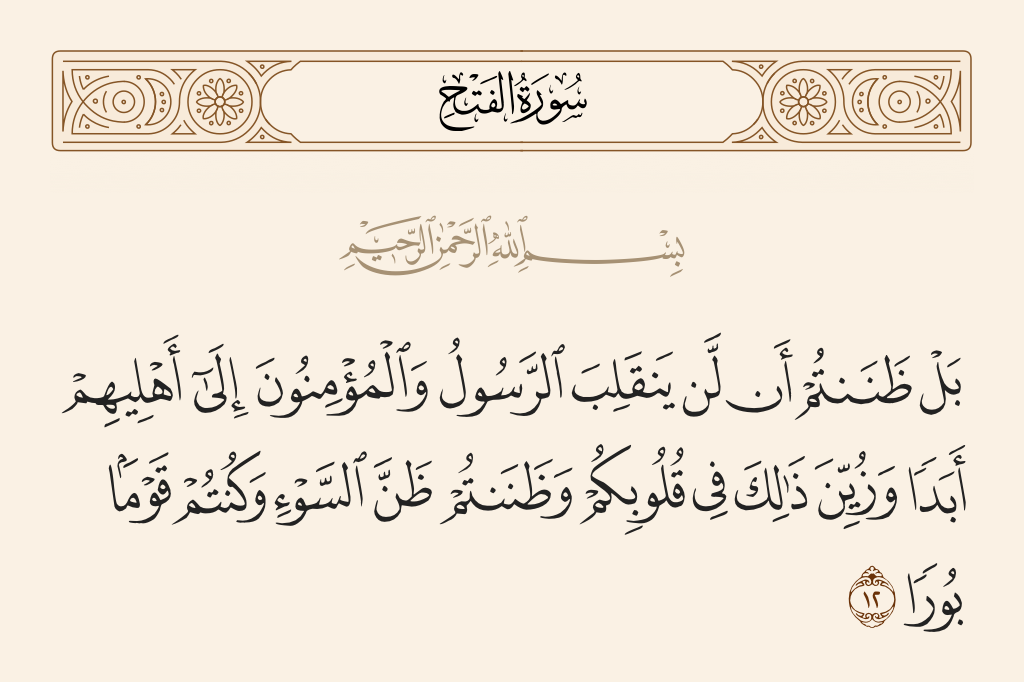 سُورَةُ الفَتْحِ
بِسْمِ ٱللَّهِ ٱلرَّحْمَٰنِ ٱلرَّحِيمِ
بَلْ ظَنَنتُمْ أَن لَّن يَنقَلِبَ ٱلرَّسُولُ وَٱلْمُؤْمِنُونَ إِلَىٰٓ أَهْلِيهِمْ
أَبَدًا وَزُيِّنَ ذَٰلِكَ فِى قُلُوبِكُمْ وَظَنَنتُمْ ظَنَّ ٱلسَّوْءِ وَكُنتُمْ قَوْمًۢا
بُورًا ١٢